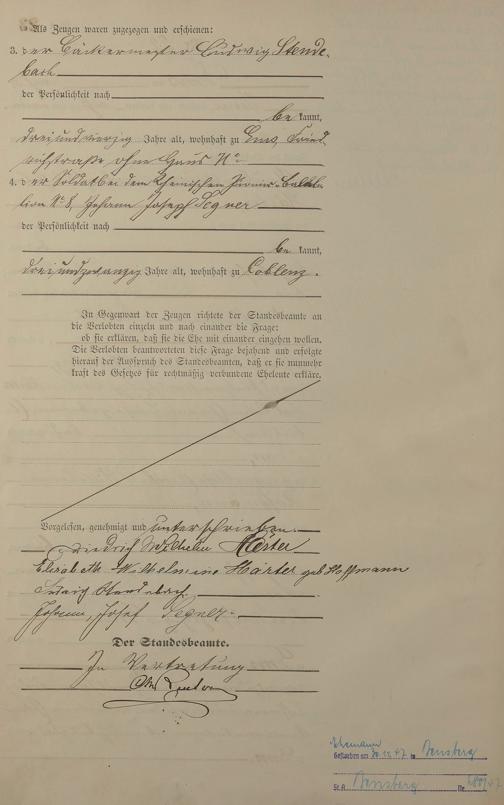 Als Zeugen waren zugezogen und erschienen:
3. der Bäckermeister Ludwig Stende-
bach
der Persönlichkeit nach
be kannt,
dreiundvierzig Jahre alt, wohnhaft zu Ems, Fried-
richstraße ohne Haus No
4. der Soldat bei dem Rheinischen Pionier-Batail-
lion No 8, Johann Joseph Segner
der Persönlichkeit nach
be kannt,
dreiundzwanzig Jahre alt, wohnhaft zu Coblenz.
In Gegenwart der Zeugen richtete der Standesbeamte an
die Verlobten einzeln und nach einander die Frage:
ob sie erklären, daß sie die Ehe mit einander eingehen wollen.
Die Verlobten beantworteten diese Frage bejahend und erfolgte
hierauf der Ausspruch des Standesbeamten, daß er sie nunmehr
kraft des Gesetzes für rechtmäßig verbundene Eheleute erkläre.
Vorgelesen, genehmigt und unterschrieben.
Friedrich Wilhelm Härter
Elisabeth Wilhelmine Härter geb Hoffmann
Ludwig Stendebach
Johann, Josef Segner
Der Standesbeamte.
In Vertretung
Ehemann
Gestorben am 20.12.47 in Bensberg
St. A. Bensberg Nr.